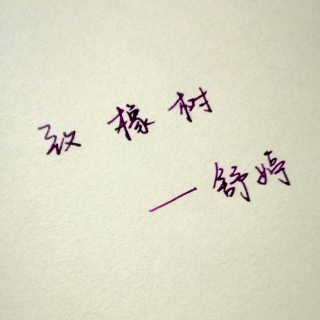 致橡树
—舒婷